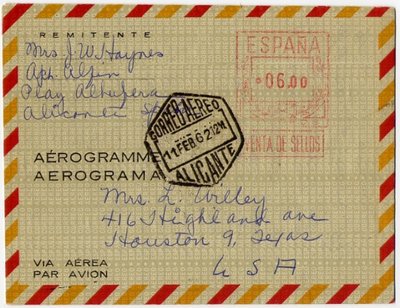 REMITENTE
Mrs J. W. Haynes
Apt. Alpin
Play Albufera
Alicante Spain
ESPAÑA
*06.00
VENTA DE SELLOS
CORREO AEREO
11 FEB 62 12M
ALICANTE
AÉROGRAMME
AEROGRAMA
Mrs. L. Willey
416 Highland ave
Houston 9, Texas
USA
VIA AÉREA
PAR AVION